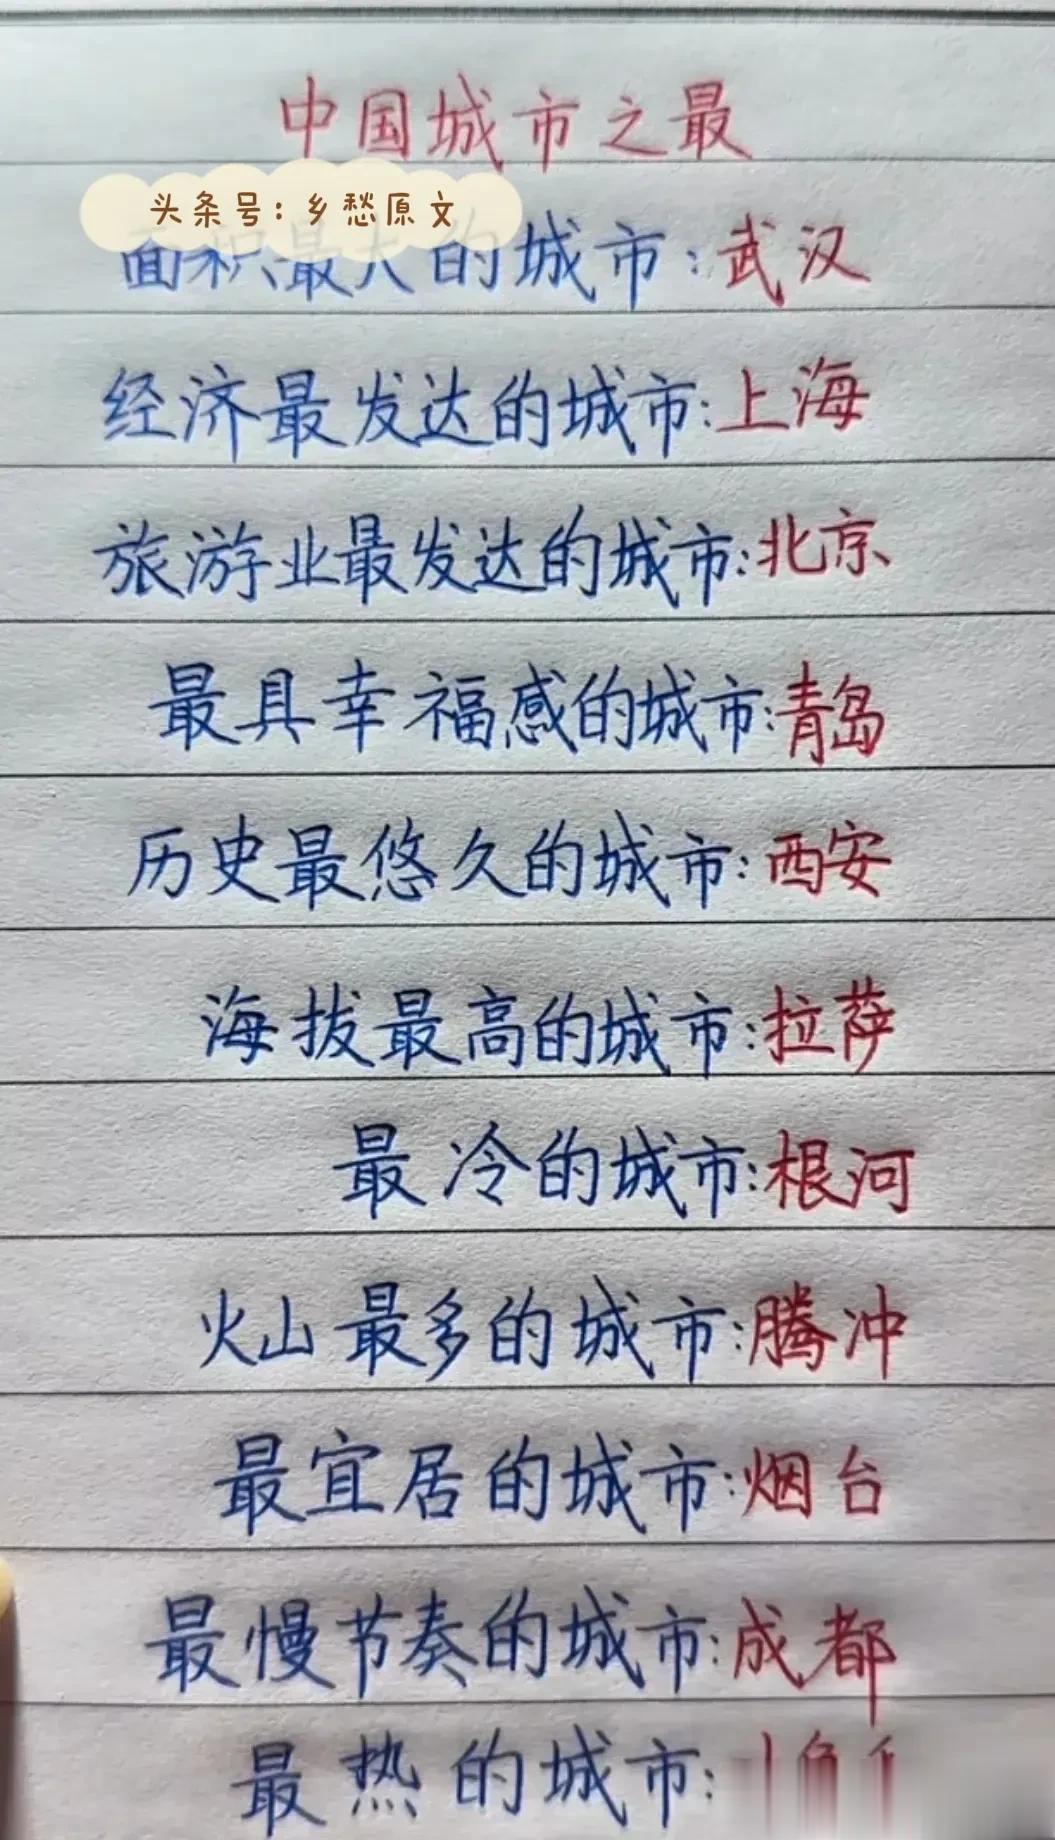 中国城市之最
头条号：乡愁原文
面积最大的城市：武汉
经济最发达的城市：上海
旅游业最发达的城市：北京
最具幸福感的城市：青岛
历史最悠久的城市：西安
海拔最高的城市：拉萨
最冷的城市：根河
火山最多的城市：腾冲
最宜居的城市：烟台
最慢节奏的城市：成都
最热的城市：